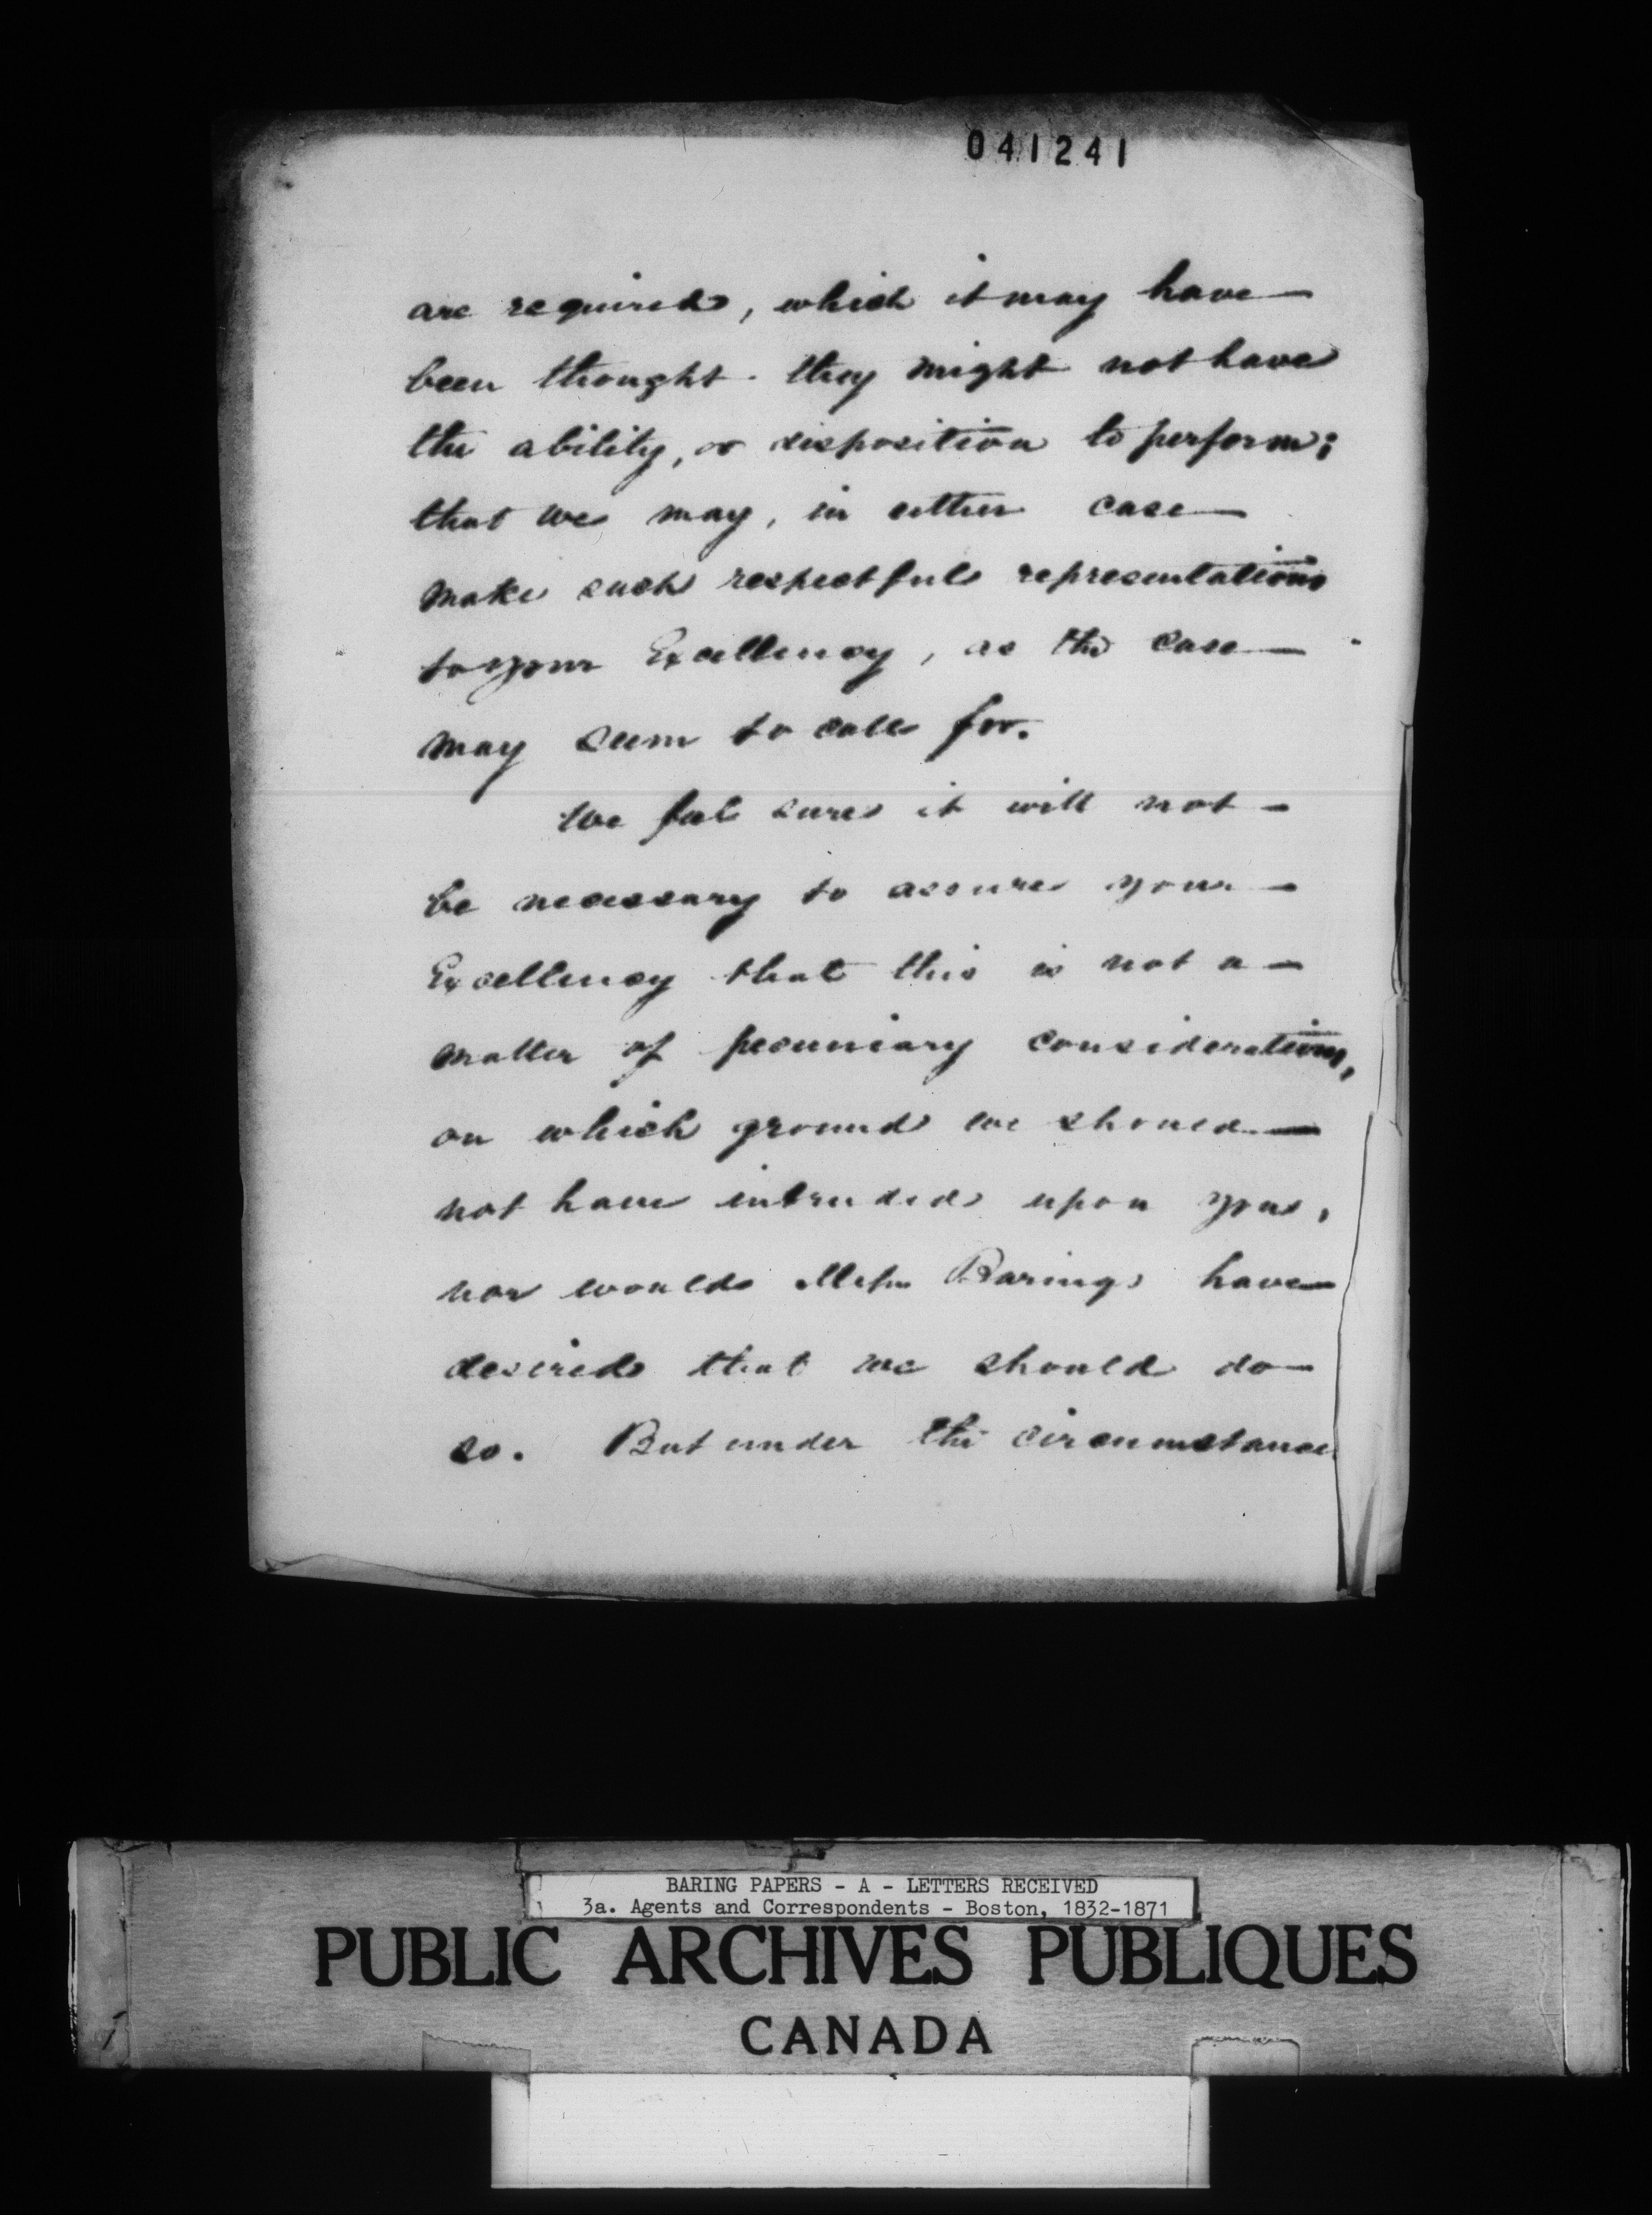 041241
are required, which it may have
been thought they might not have
the ability, or disposition to perform;
that we may, in either case
make such respectful representations
to your Excellency, as the case
may seem to call for.
We feel sure it will not
be necessary to assure your
Excellency that this is not a
matter of pecuniary consideration,
on which ground we should
not have intruded upon you,
nor would Messrs Barings have
desired that we should do
so. But under the circumstances
BARING PAPERS - A - LETTERS RECEIVED
3a. Agents and Correspondents - Boston, 1832-1871
PUBLIC ARCHIVES PUBLIQUES
CANADA